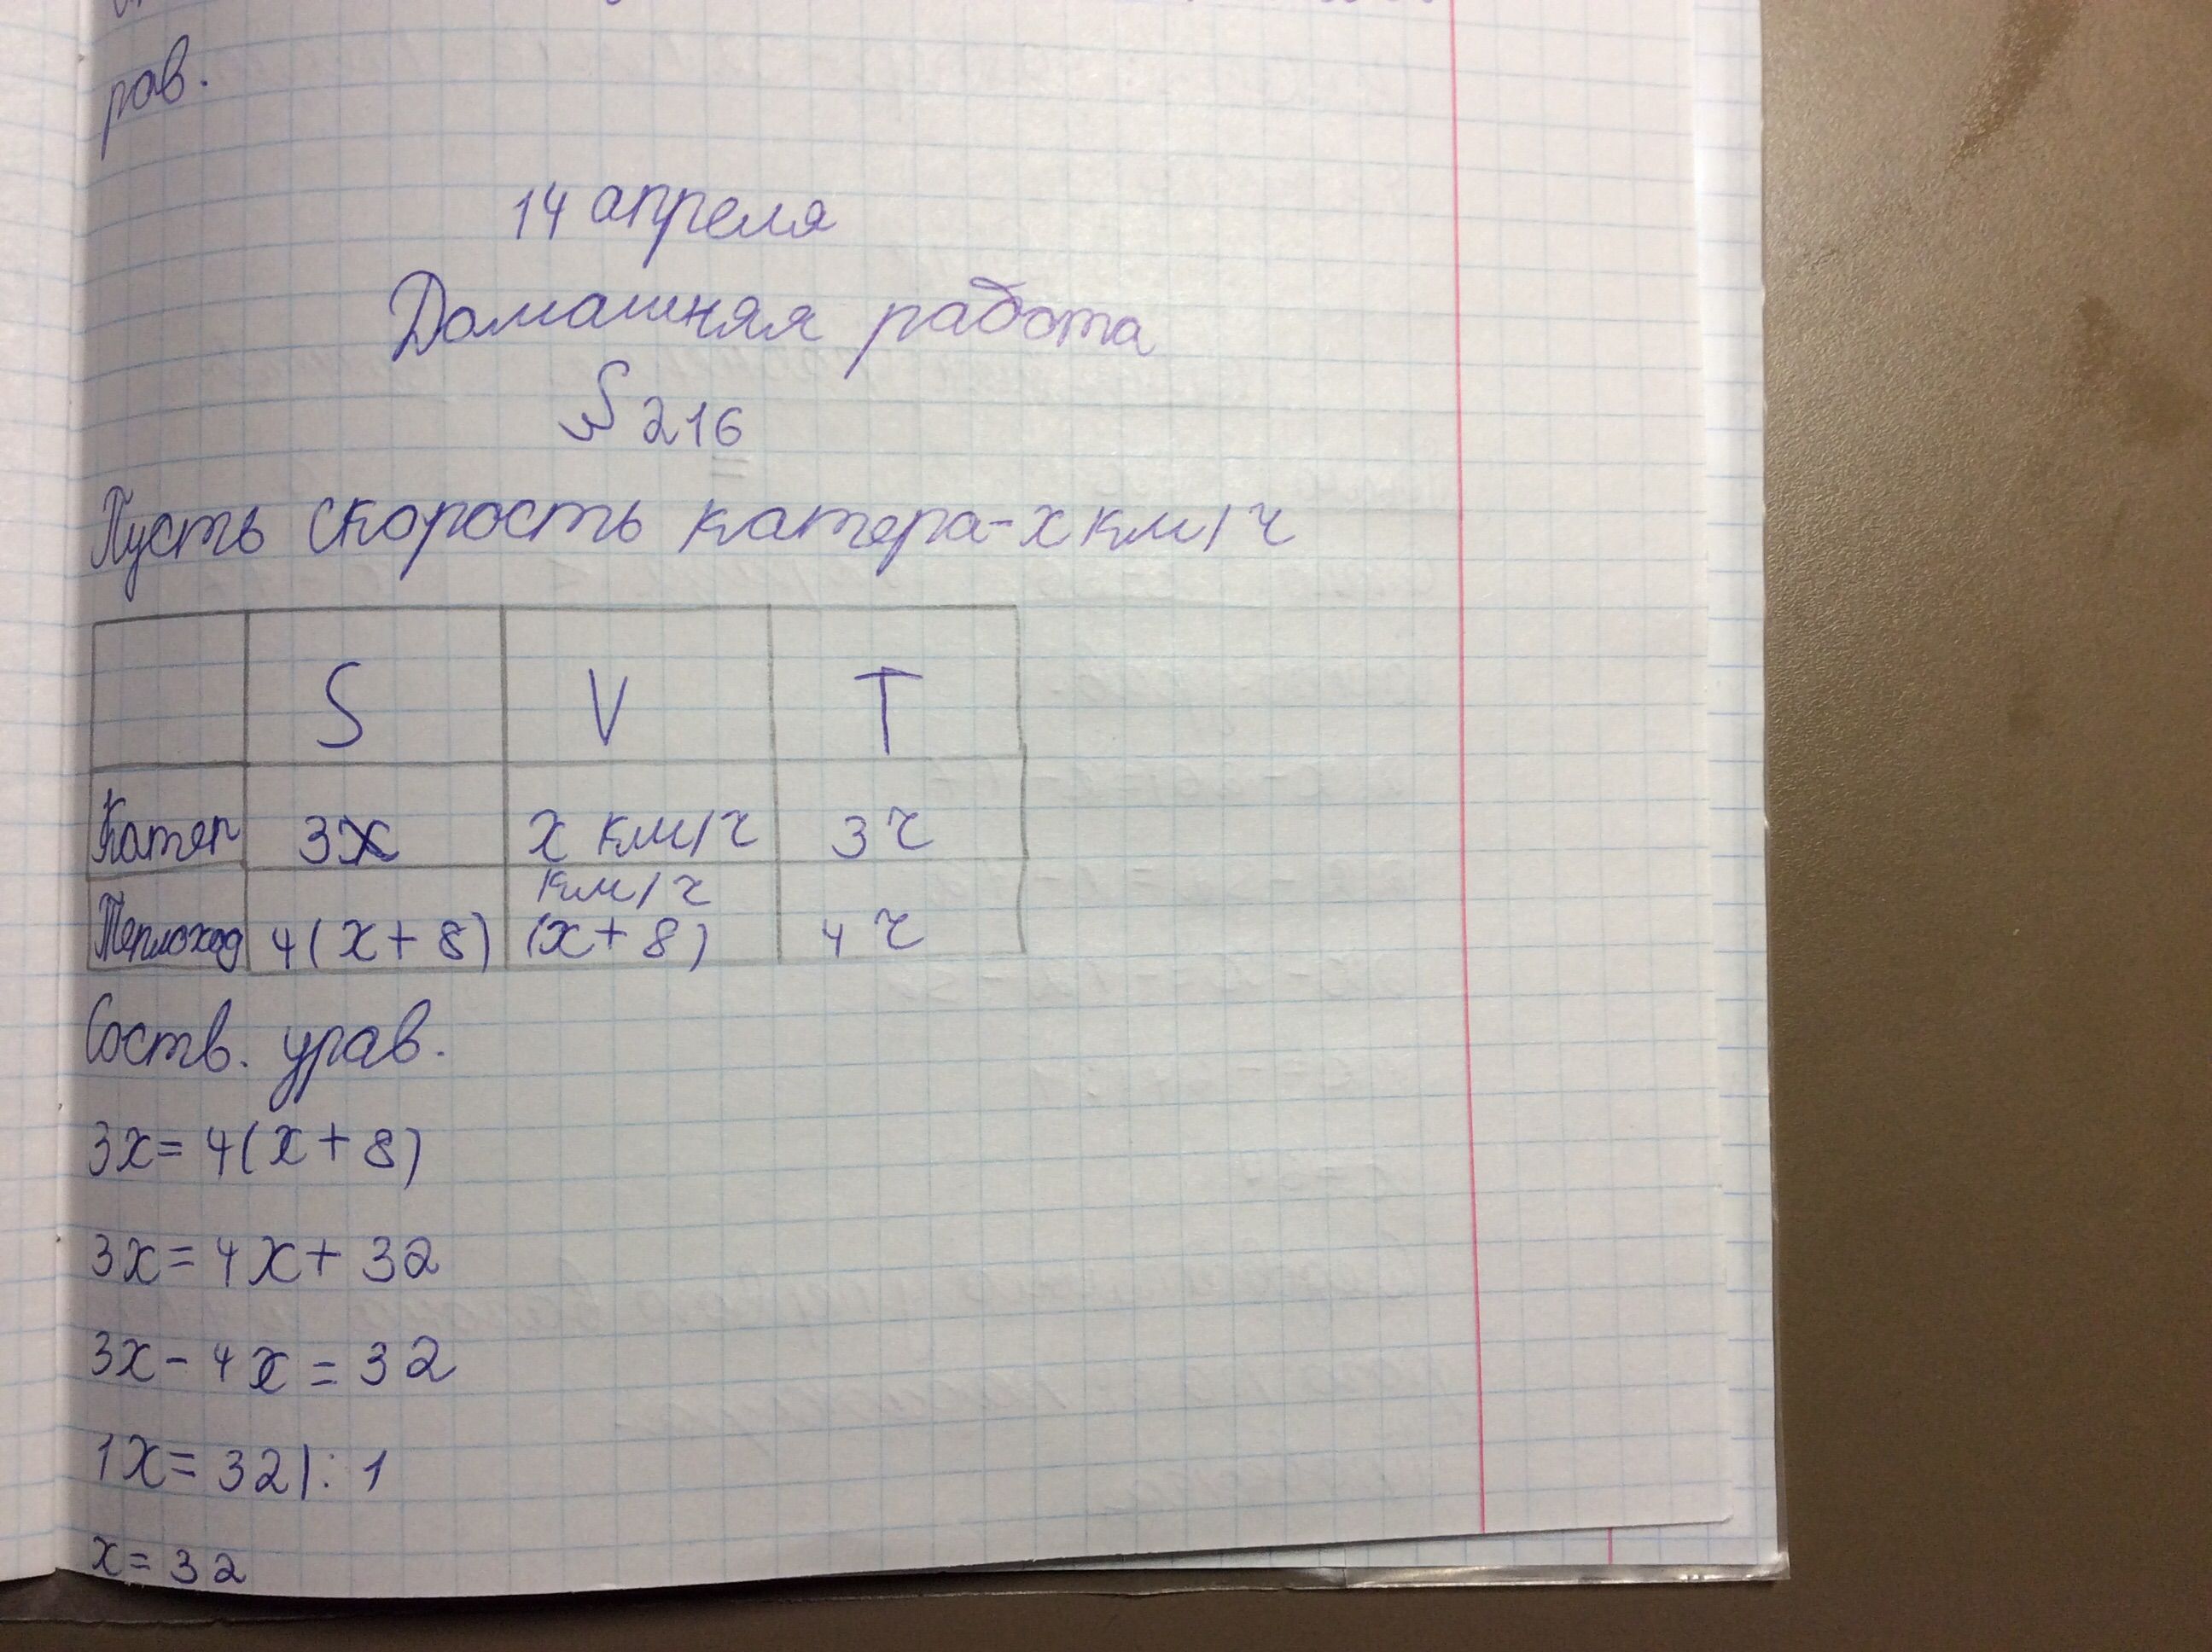 рав.
14 апреля
Домашняя работа
§ 216
Пусть скорость катера - х км/ч
S V T
Катер 3х х км/ч 3 ч
Теплоход 4(х+8) км/ч (х+8) 4 ч
Соств. урав.
3х=4(х+8)
3х=4х+32
3х-4х=32
1х=32|:1
х=32